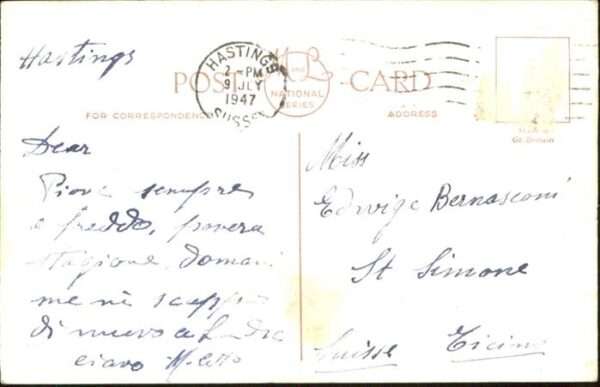 Hastings
HASTINGS
2 - PM
9 JLY
1947
SUSSEX
POST CARD
NATIONAL SERIES
FOR CORRESPONDENCE
ADDRESS
Made in
Gt. Britain
Dear
Piove sempre
e freddo, povera
stagione. Domani
me ne scappo
di nuovo a Londra
ciavo
Miss
Edvige Bernasconi
St Simone
Suisse Ticino